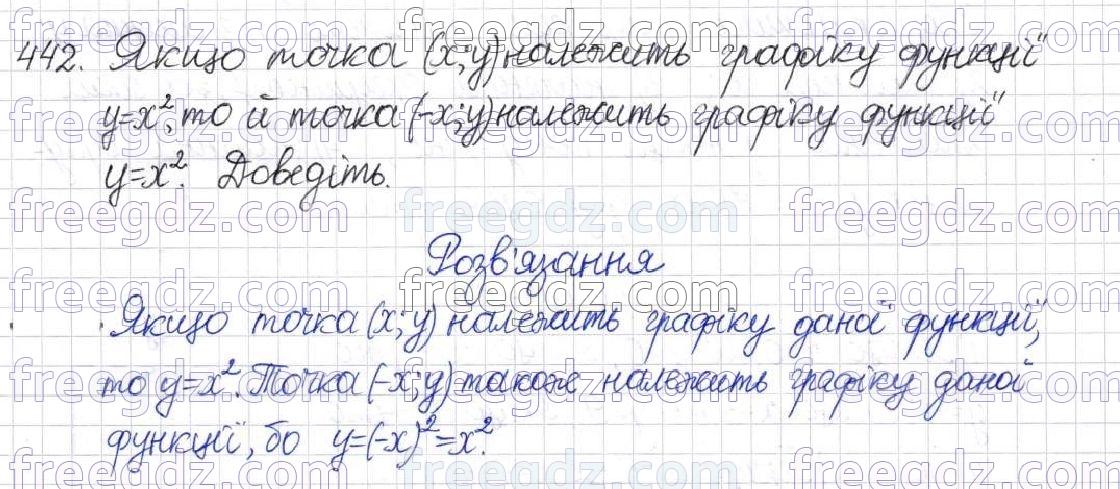 442. Якщо точка (x;y) належить графіку функції
y=x², то й точка (-x;y) належить графіку функції
y=x². Доведіть.
Розв'язання
Якщо точка (x;y) належить графіку даної функції,
то y=x². Точка (-x;y) також належить графіку даної
функції, бо y=(-x)²=x².
freegdz.com